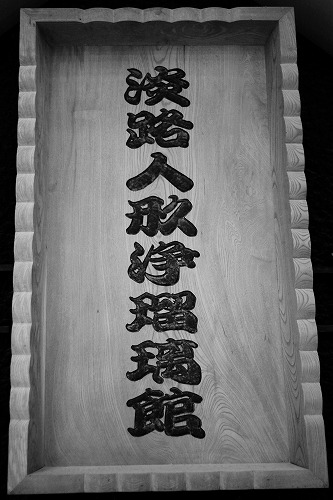 淡路人形浄瑠璃館